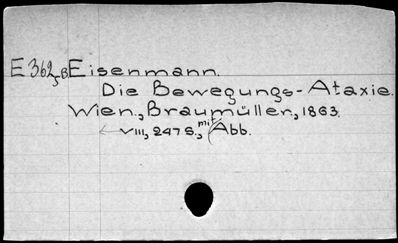 E 362,B Eisenmann.
Die Bewegungs-Ataxie.
Wien., Braumüller, 1863.
VIII, 247 S., mit Abb.